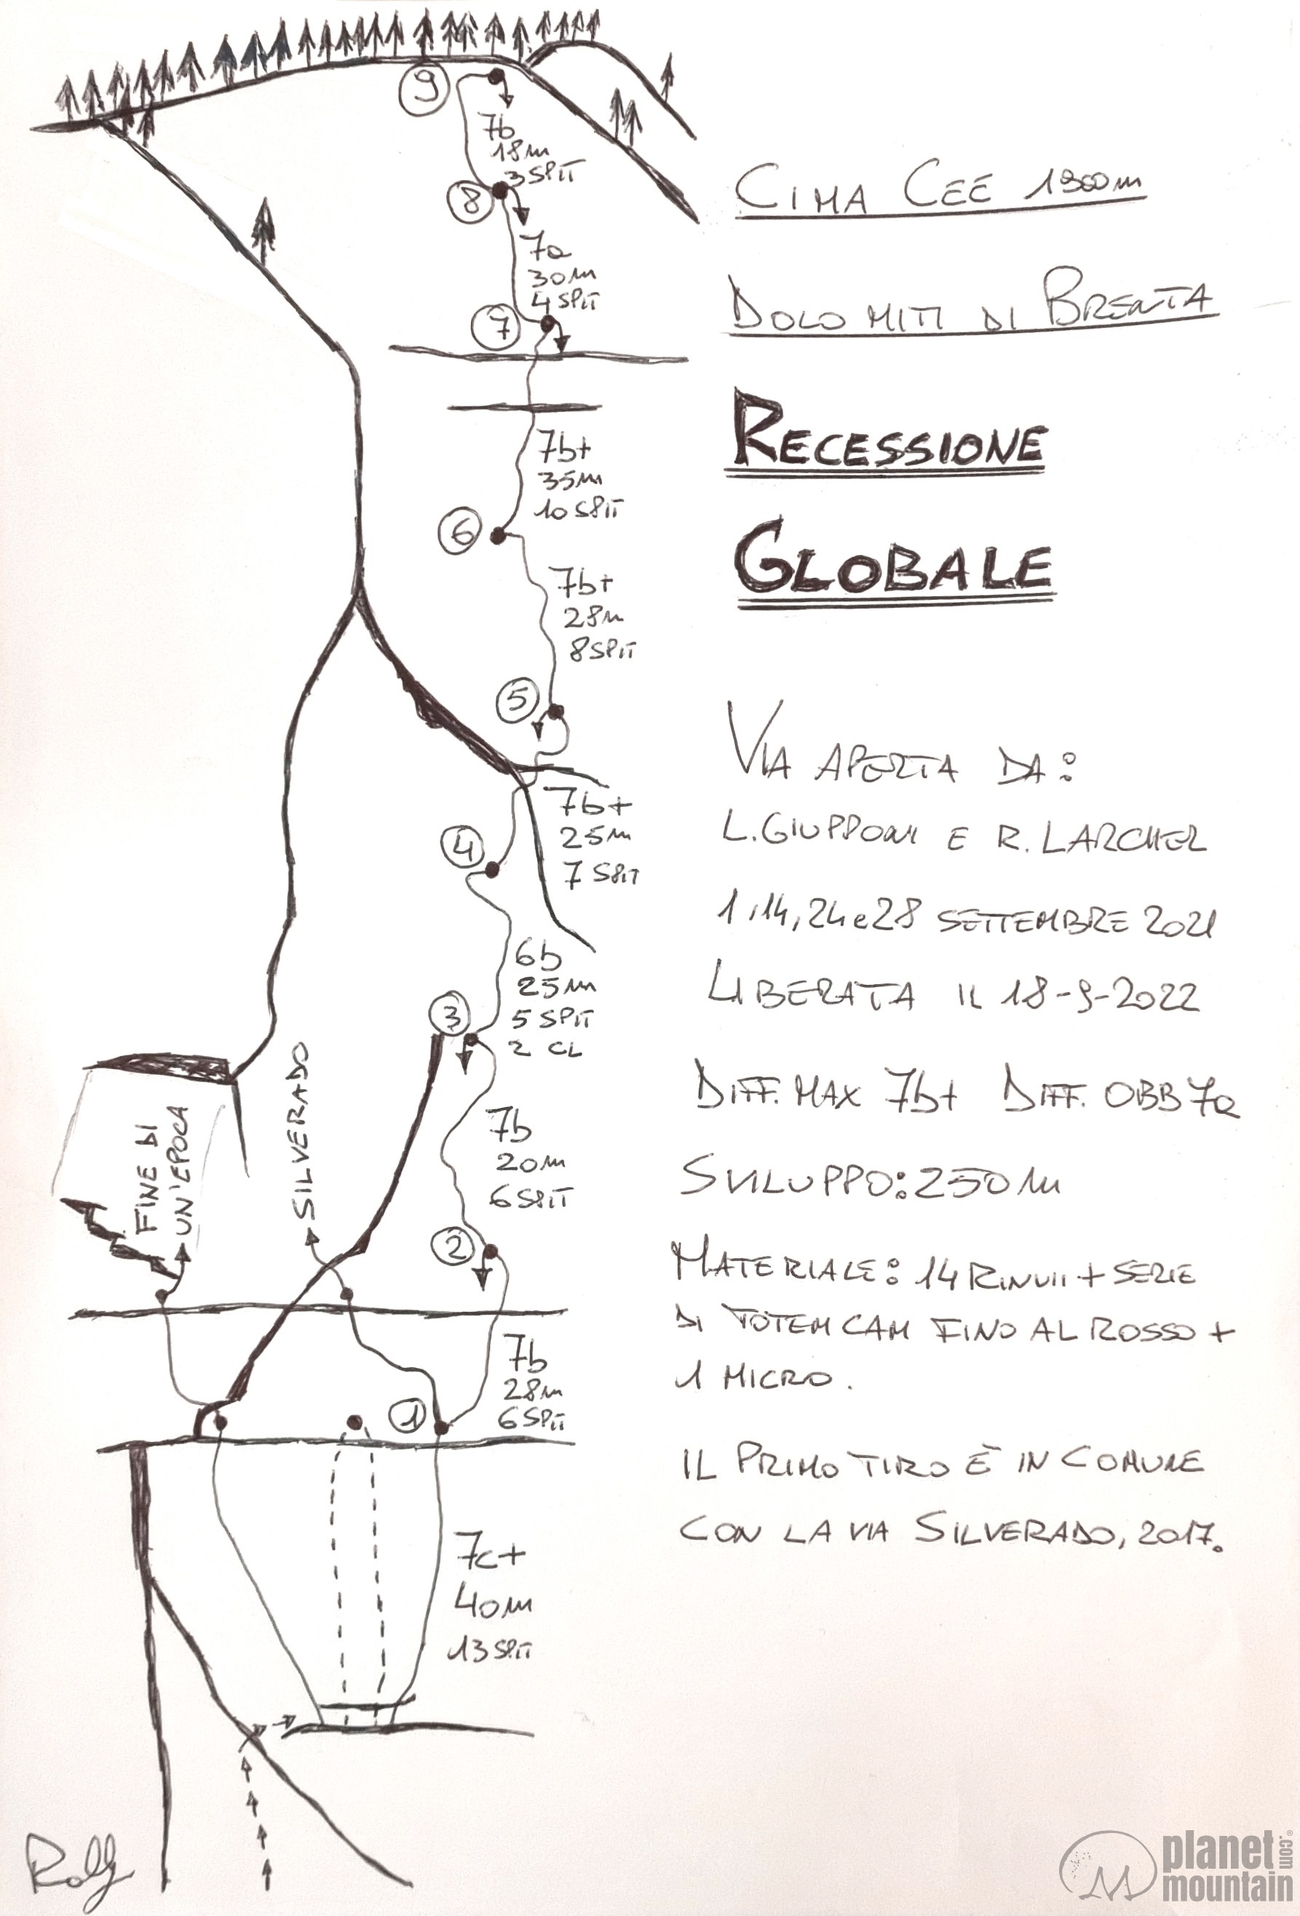 9
7b
18m
3 SPIT
8
7a
30m
4 SPIT
7
7b+
35m
10 SPIT
6
7b+
28m
8 SPIT
5
7b+
25m
7 SPIT
4
6b
25m
5 SPIT
2 CL
3
7b
20m
6 SPIT
2
7b
28m
6 SPIT
1
7c+
40m
13 SPIT
FINE DI
UN'EPOCA
SILVERADO
CIMA CEE 1900m
DOLOMITI DI BRENTA
RECESSIONE
GLOBALE
VIA APERTA DA:
L. GIUPPONI E R. LARCHER
1, 14, 24 e 28 SETTEMBRE 2021
LIBERATA IL 18-9-2022
DIFF. MAX 7b+ DIFF. OBB 7a
SVILUPPO: 250m
MATERIALE: 14 RINVII + SERIE
DI TOTEM CAM FINO AL ROSSO +
1 MICRO.
IL PRIMO TIRO È IN COMUNE
CON LA VIA SILVERADO, 2017.
Rolly
planet
mountain
.com